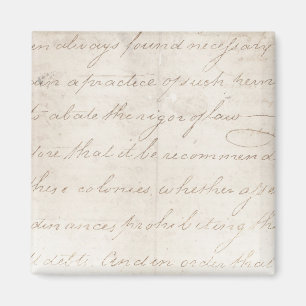 en always found necessary
ain a practice of such
to abate the rigor of law
fore that it be recommend
these colonies, whether
dinances prohibiting th
debts. And in order that